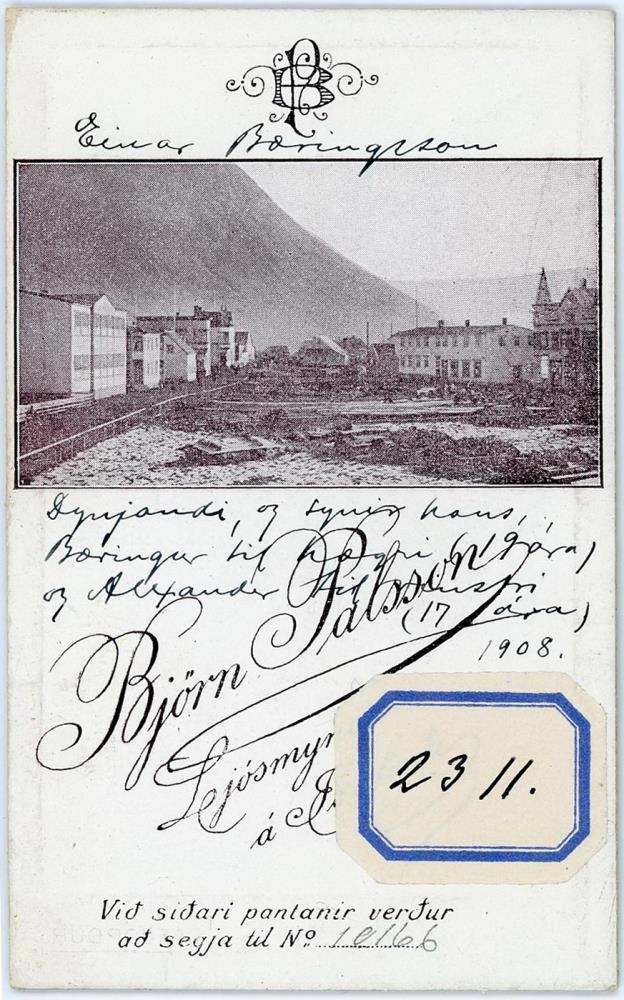 BP
Einar Bæringsson
Dynjandi, og synir hans,
Bæringur til hægri (19 ára)
og Alexander til vinstri
(17 ára)
1908.
Björn Pálsson
Ljósmyn
á
23 11.
Við síðari pantanir verður
að segja til Nº 10166